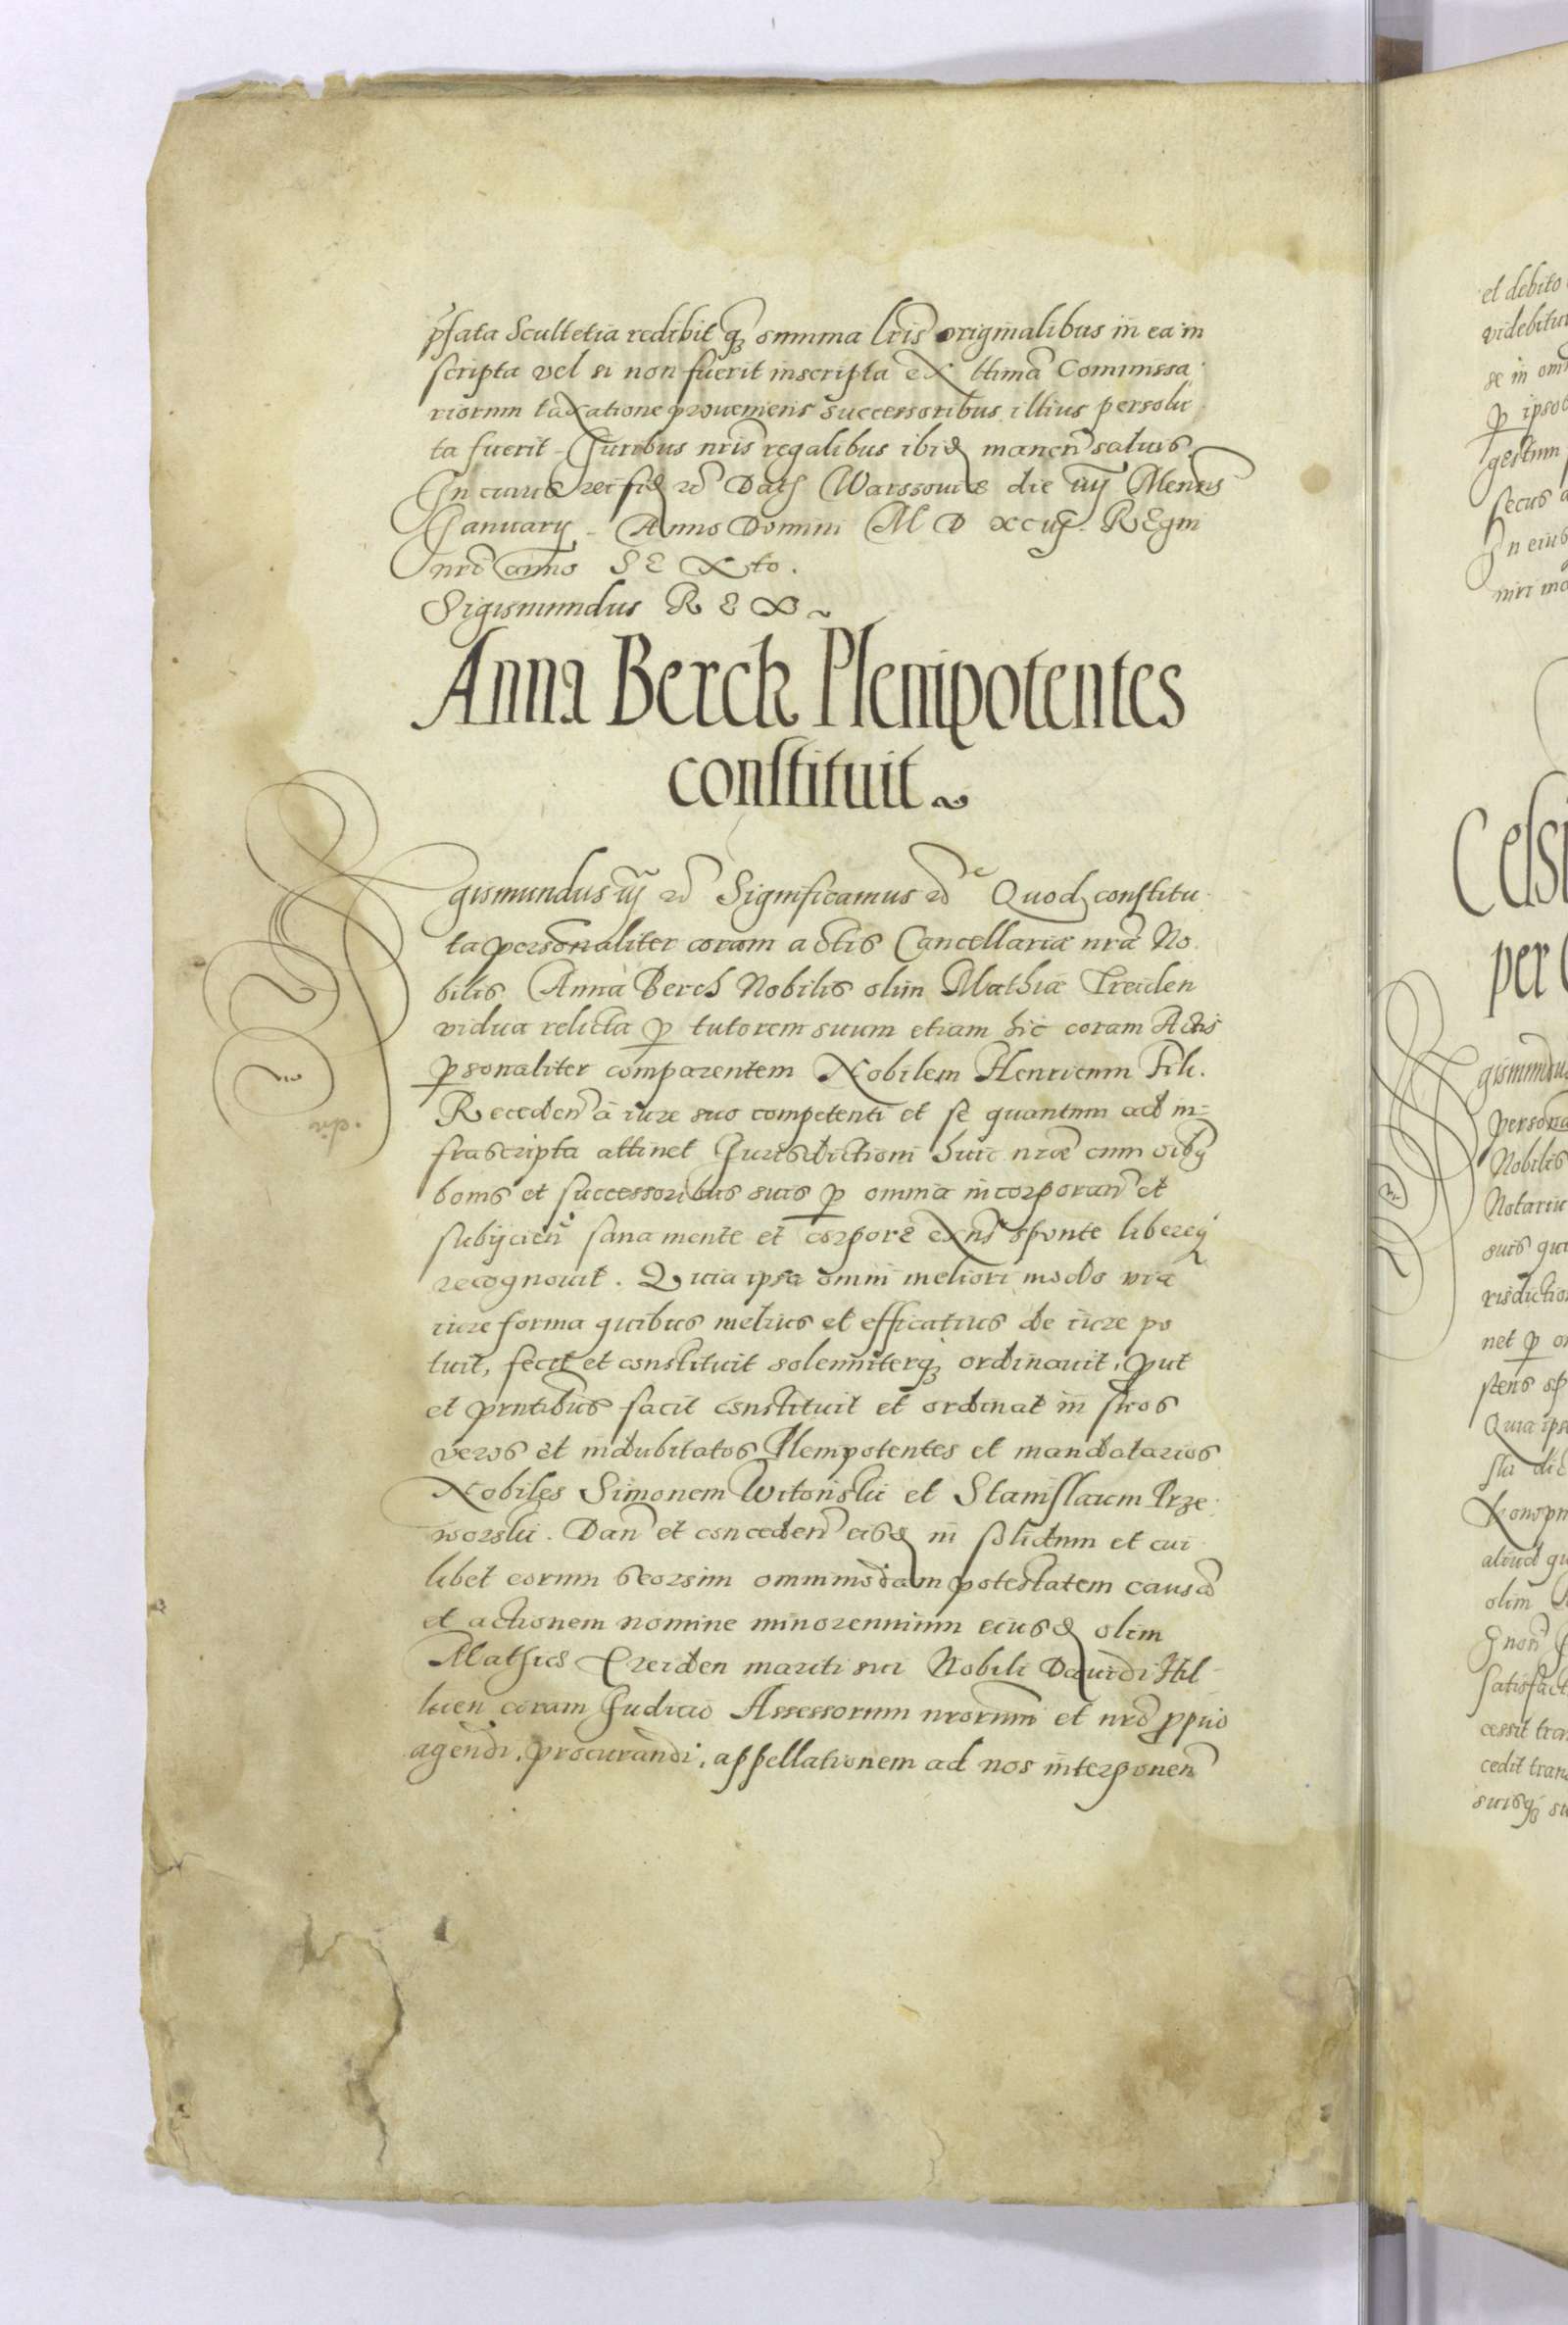 p̃fata Scultetia redibit q̃ summa lr̃is originalibus in ea in
scripta vel si non fuerit inscripta ex lt̃ima Commissa
riorum taxatione proueniens successoribus illius persolu
ta fuerit. Iuribus nr̃is regalibus ibid manen̄ saluis
In cuius rei fid etc̃ Dat Warssouiæ die iiij Mensis
January. Anno Domini M D xciij. REgni
nr̃i anno SEXto.
Sigismundus REX
Anna Berck Plenipotentes
constituit
Sigismundus iij etc̃ Significamus etc̃ Quod constitu
ta personaliter coram actis Cancellariæ nr̃æ No
bilis Anna Berch Nobilis olim Mathiæ Treiden
vidua relicta p tutorem suum etiam hic coram Actis
psonaliter comparentem Nobilem Henricum Filt.
Receden̄ à iure suo competenti et se quantum ad in=
frascripta attinet Jurisdictioni huic nr̃æ cum oib9
bonis et successoribus suis p omnia incorporan̄ et
subijcien̄ sana mente et corpore exn̄s sponte libereq
recognouit. Quia ipsa omni meliori modo via
iure forma quibus melius et efficatius de iure po
tuit, fecit et constituit solenniterq ordinauit, put
et pr̃ntibus facit constituit et ordinat in suos
veros et indubitatos Plenipotentes et mandatarios
Nobiles Simonem Witoński et Stanislaum Prze
worski. Dan̄ et conceden̄ eisd in solidum et cui
libet eorum seorsim omnimodam potestatem causã
et actionem nomine minorennium eiusd olim
Mathiæ Treiden mariti sui Nobili Dauidi Hil
chen coram Judicio Assessorum nr̃orum et nr̃o p̱prio
agendi, procurandi, appellationem ad nos interponen̄
et debito
videbitur
se in om
p ipso
gestum
secus
In eius
nri
Cels
per
gismundu
persona
Nobilis
Notariu
suis qui
risdictio
net p o
stens sp
Quia ips
sla die
Konopn
aliud qu
olim
Jnon
satisfact
cessit tra
cedit tran
suisq su